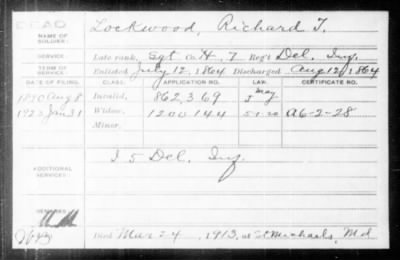 DEAD
NAME OF SOLDIER: Lockwood, Richard T.
SERVICE: Late rank, Sgt Co. H, 7 Reg't Del. Inf.
TERM OF SERVICE: Enlisted July 12, 1864 Discharged Aug 12, 1864
DATE OF FILING. CLASS. APPLICATION NO. LAW. CERTIFICATE NO.
1890 Aug 8 Invalid, 862,369
May
1923 Jan 31 Widow, 1200144 5-1-20 A6-2-28
Minor,
ADDITIONAL SERVICES: I 5 Del. Inf.
REMARKS:
Died Mar 24, 1913, at St Michaels, Md